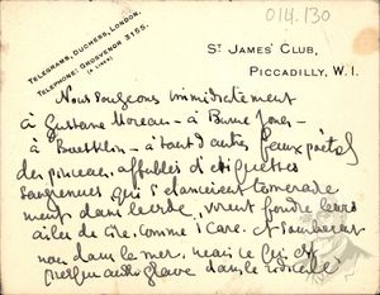 014.130
TELEGRAMS, DUCHESS, LONDON.
TELEPHONE: GROSVENOR 3155.
(4 LINES)
ST JAMES' CLUB,
PICCADILLY, W.1.
Nous songeons immediatement
à Gustave Moreau - à Burne Jones -
à Boecklin - à tant d'autres faux poètes
du pinceau, affublés d'etiquettes
saugrenues qui s'elancèrent temeraire
ment dans le vide, virent fondre leurs
ailes de cire, comme Icare. et sombrèrent
non dans la mer, mais ce qui est
presque aussi grave dans le ridicule